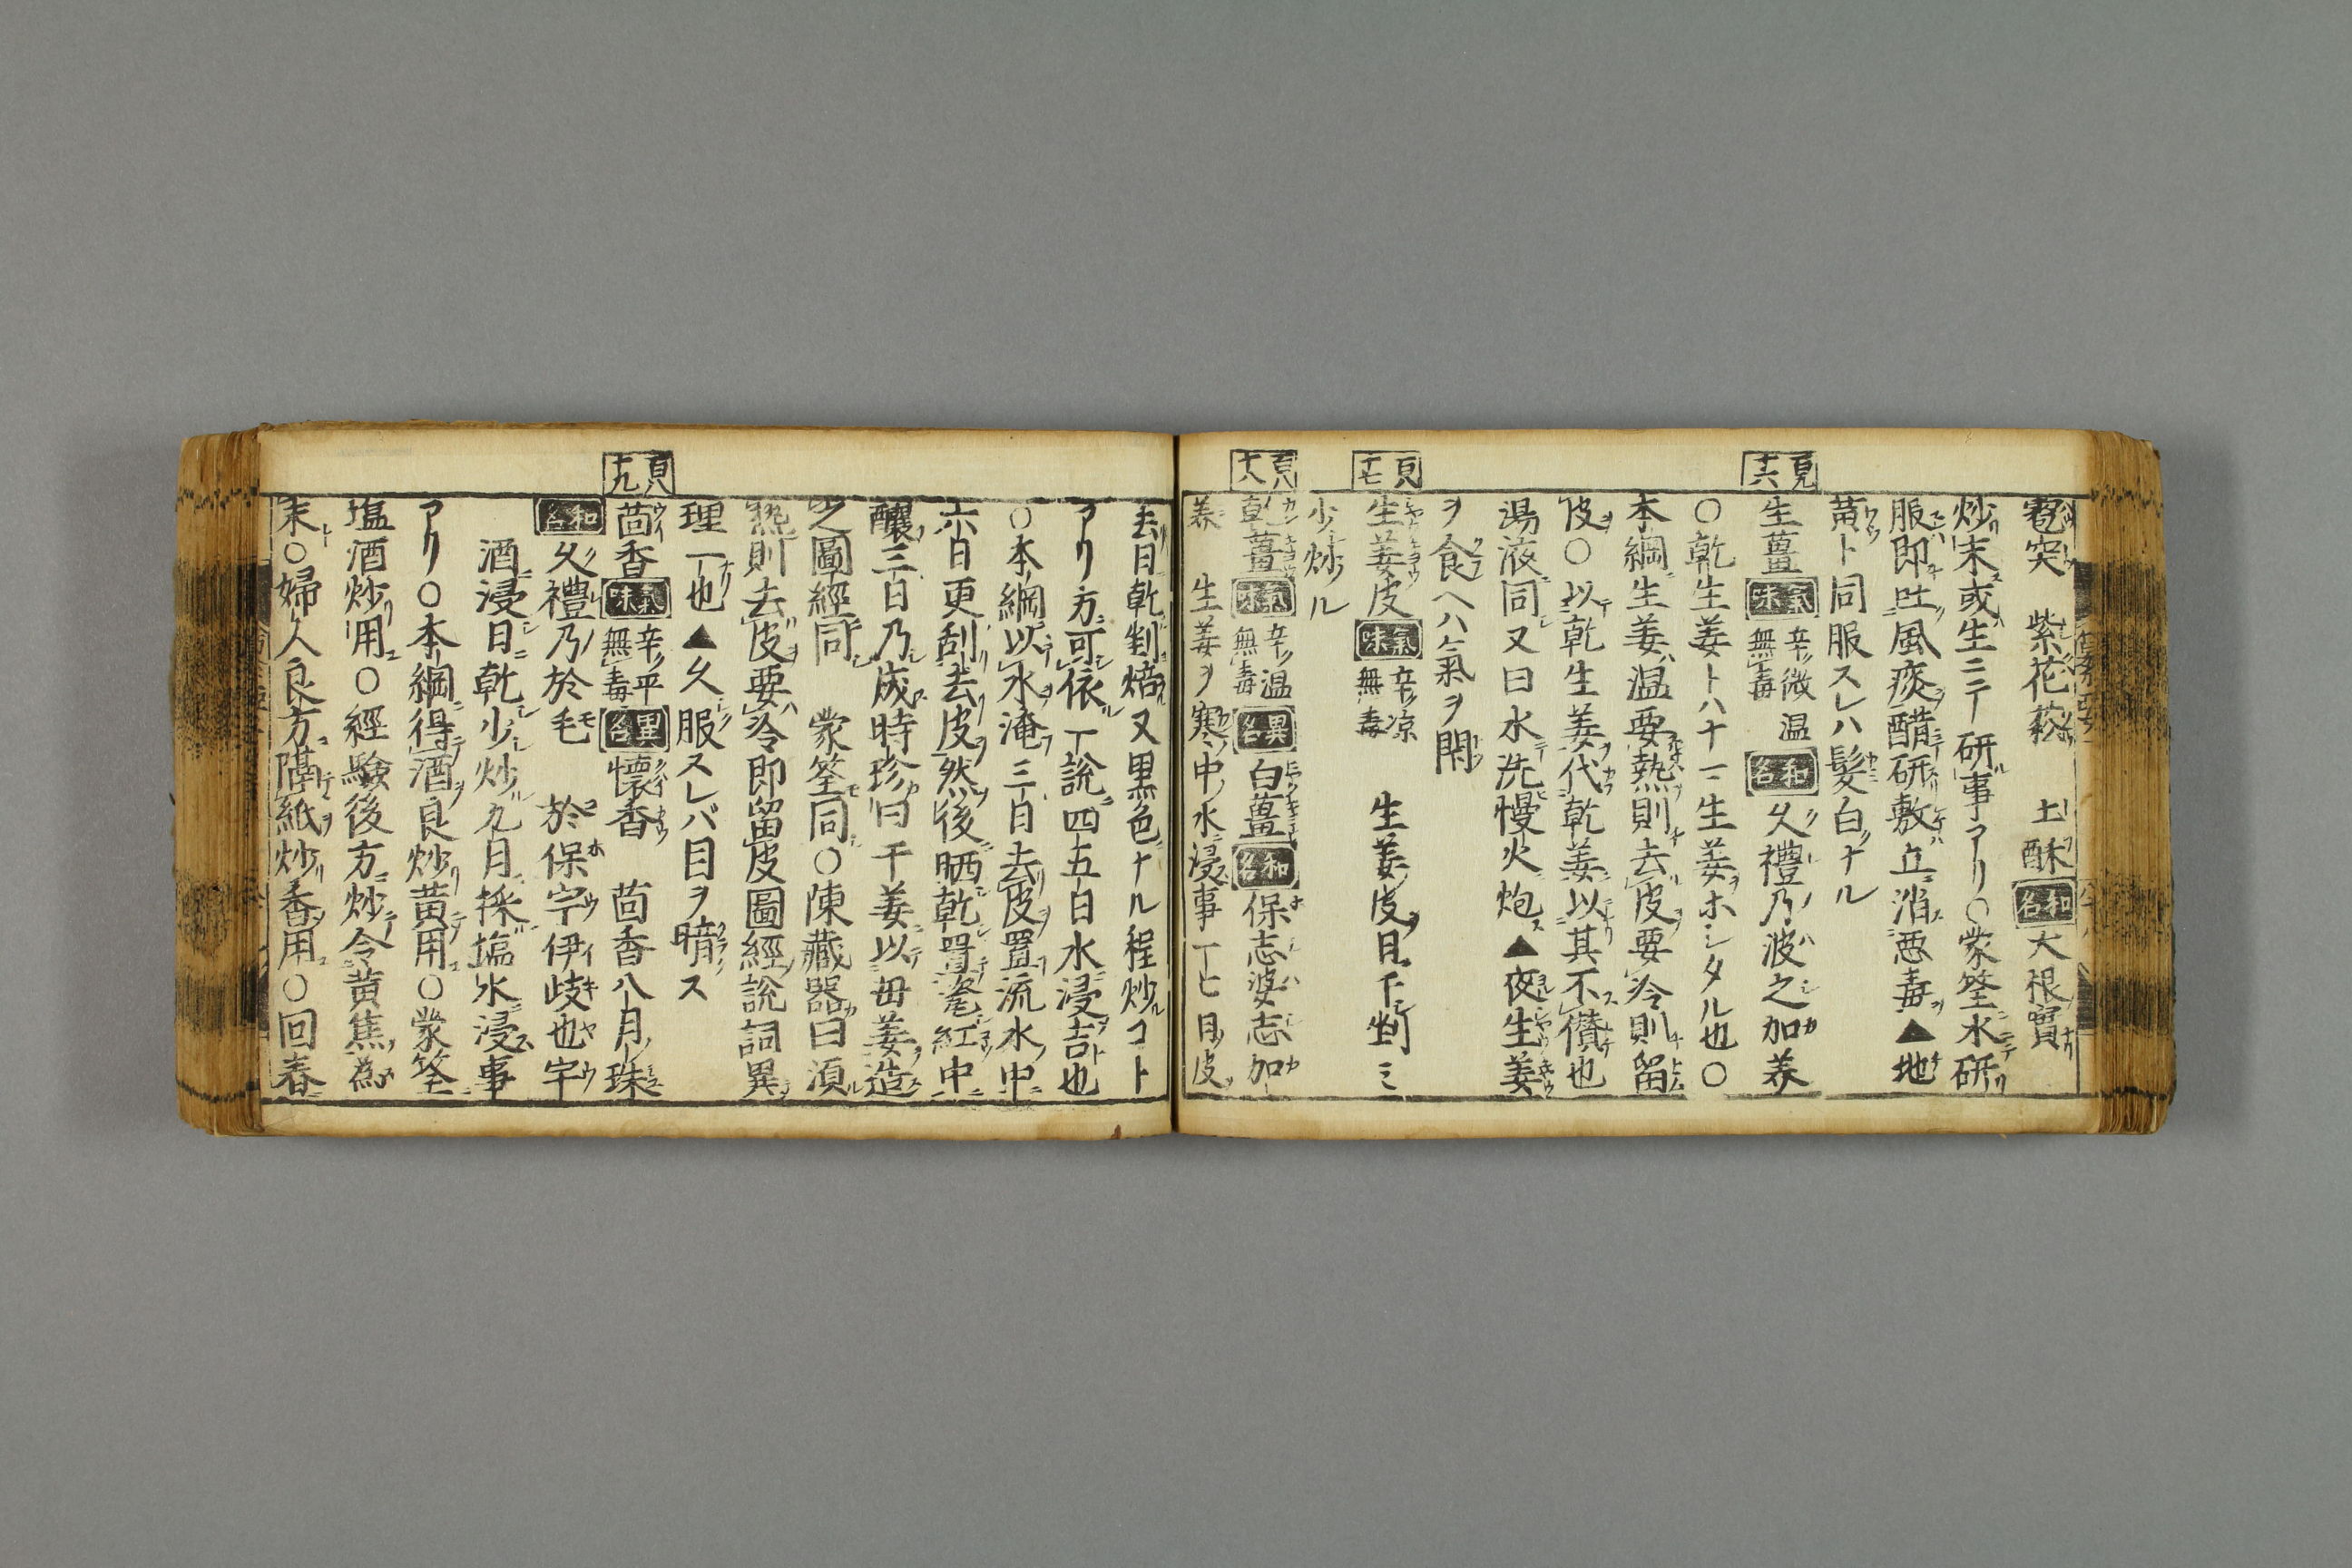 雹突　紫花菘　土酥 和名 大根實
炒末或生ニテ研事アリ○蒙筌水研
服即吐風痰醋研敷立消悪毒▲地
黄ト同服スレハ髪白ナル
十六
生薑 氣味 辛微温無毒 和名 久禮乃波之加美
○乾生姜トハ十一生姜ホシタル也○
本綱生姜温要熱則去皮要冷則留
皮○以乾生姜代乾姜以其不僣也
湯液同又曰水洗慢火炮▲夜生姜
ヲ食ヘハ氣ヲ閇
十七
生姜皮 氣味 辛凉無毒 生姜皮日干剉ミ
少炒ル
十八
乾薑 氣味 辛温無毒 異名 白薑 和名 保志婆志加
美　生姜ヲ寒中水浸事丁七日皮
去日乾剉焙又黒色ナル程炒コト
アリ方可依丁説四五日水浸吉也
○本綱以水淹三日去皮置流水中
六日更刮去皮然後晒乾置瓷缸中
釀三日乃成時珍曰干姜以母姜造
之圖經同　蒙筌同○陳藏器曰須
熱則去皮要冷即留皮圖經説詞異
理一也▲久服スレバ目ヲ暗ス
十九
茴香 氣味 辛平無毒 異名 懷香　茴香八月珠
和名 久禮乃於毛　於保宇伊岐也宇
酒浸日乾少炒九月採塩水浸事
アリ○本綱得酒良炒黄用○蒙筌
塩酒炒用○經驗後方炒令黄焦為
末○婦人良方隔紙炒香用○回春